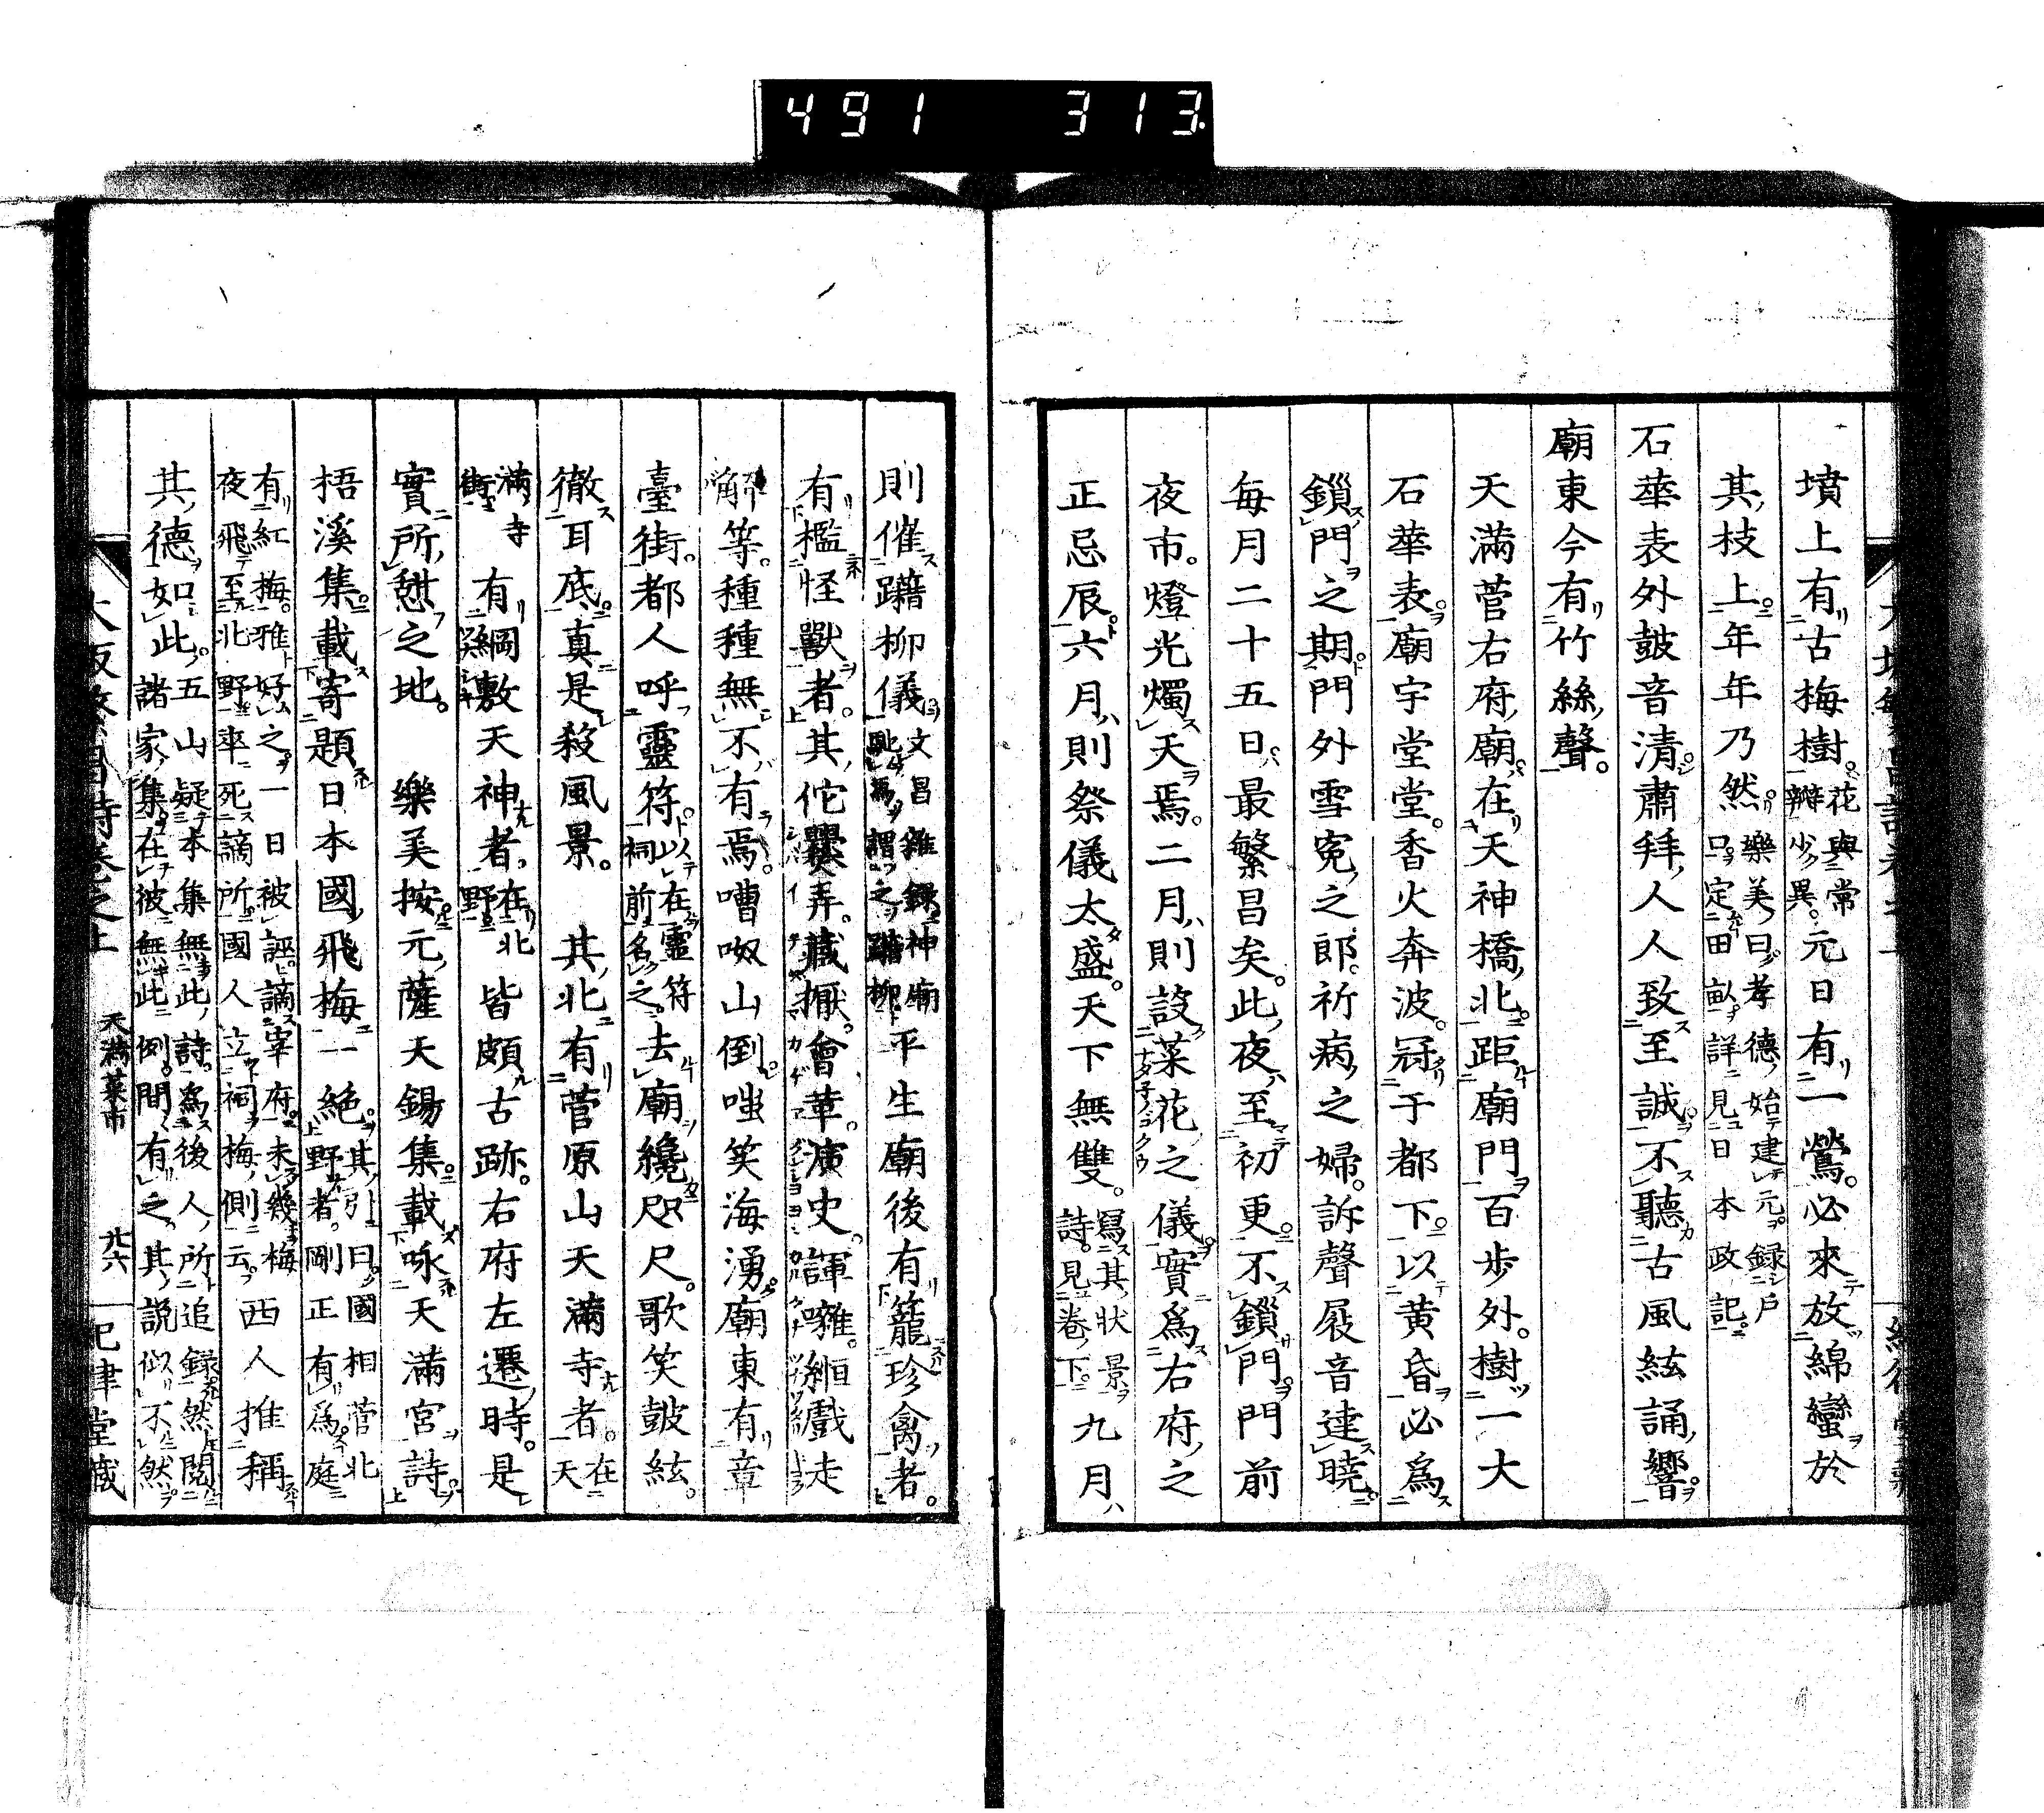 491 313
墳上有古梅樹。花與常瓣少異。元日有一鶯。必來放綿蠻於
其枝上。年年乃然。樂美曰孝德始建元。録戸口定田畝。詳見日本政記。
石華表外皷音清肅拜人人致至誠。不聽古風絃誦響。
廟東今有竹絲聲。
天滿菅右府廟。在天神橋北。距廟門百歩外。樹一大
石華表。廟宇堂堂。香火奔波。冠于都下。以黄昏必爲
鎖門之期。門外雪寃之郎。祈病之婦。訴聲屐音達曉。
每月二十五日。最繁昌矣。此夜至初更。不鎖門。門前
夜市。燈光燭天焉。二月則設菜花之儀。實爲右府之
正忌辰。六月則祭儀太盛。天下無雙。寫其狀景詩。見卷下。九月
則催躤柳儀。文昌雜録神廟馳馬謂之躤柳平生廟後有籠珍禽者。
有檻怪獸者。其佗弄。藏擫。會葦。演史。諢囃。緪戲走
解等。種種無不有焉。嘈呶山倒。嗤笑海湧。廟東有章
臺街。都人呼靈符。以在靈符祠前名之。去廟纔咫尺。歌笑皷絃。
徹耳底。真是殺風景。 其北有菅原山天滿寺者。在天
滿寺街 有綱敷天神者。在北野 皆頗古跡。右府左遷時。是
實所憇之地。 樂美按元薩天錫集。載咏天滿宮詩。
梧溪集。載寄題日本國飛梅一絶。其引曰。國相菅北野者。剛正有爲。庭
有紅梅。雅好之。一日被誣謫宰府。未幾梅夜飛至北野。卒死謫所。國人立祠梅側云。西人推稱
其德如此。五山諸家集。在彼無此例。間有之。其說似不然。疑本集無此詩。爲後人所追録。然閲
天滿菜市 廿六